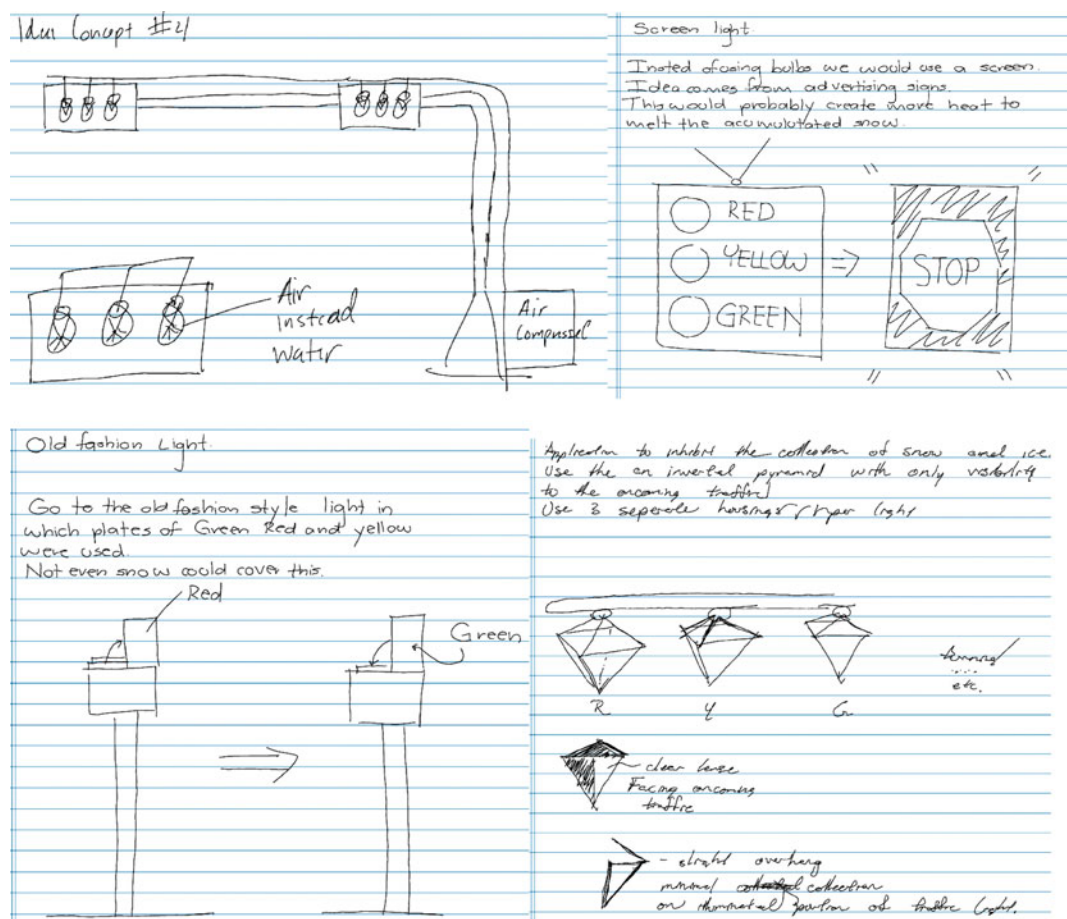 Idea Concept #4
Air
instead
water
Air
Compressel
Screen light.
Insted of using bulbs we would use a screen.
Idea comes from advertising signs.
This would probably create more heat to
melt the acumulutated snow.
RED
YELLOW
GREEN
STOP
Old fashion Light.
Go to the old fashion style light in
which plates of Green Red and yellow
were used.
Not even snow could cover this.
Red
Green
Application to inhibit the collection of snow and ice.
Use the an inverted pyramid with only visibility
to the oncoming traffic
Use 3 seperate housings / type light
R
Y
G
etc.
clear lense
Facing oncoming
traffic
- slight overhang
minimal collection
on illuminated portion of traffic light.